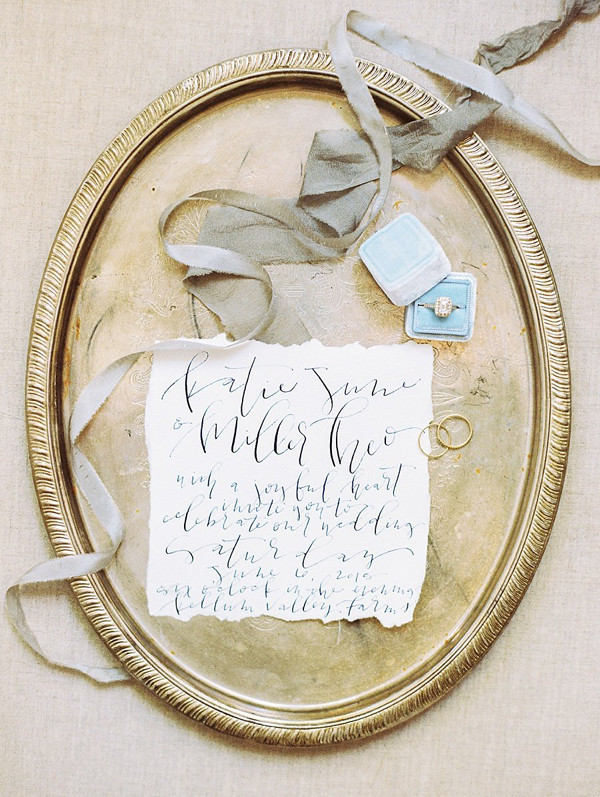 Katie June
& Miller Theo
with a joyful heart
invite you to
celebrate our wedding
Saturday
June 6, 2015
six o'clock in the evening
Kellum Valley Farms